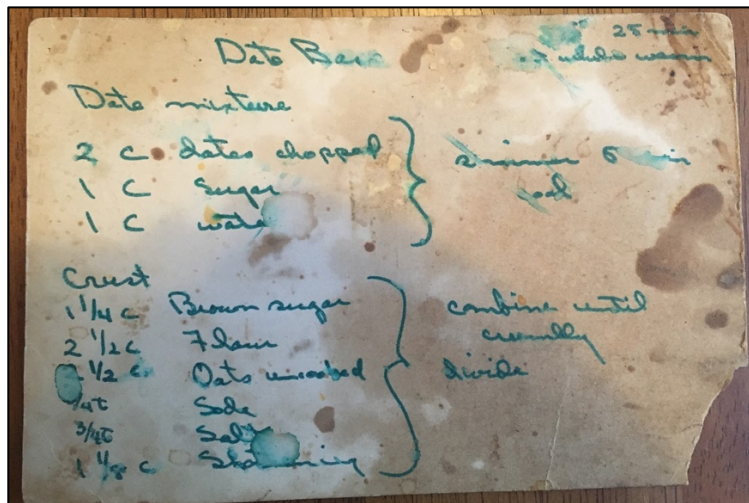 Date Bars
25 min
while warm
Date mixture
2 C dates chopped
1 C Sugar
1 C water
simmer 5 min
cool
Crust
1 1/4 C Brown sugar
2 1/2 C Flour
1/2 C Oats uncooked
3/4 t Salt
Soda
1 1/8 C Shortening
combine until
crumbly
divide